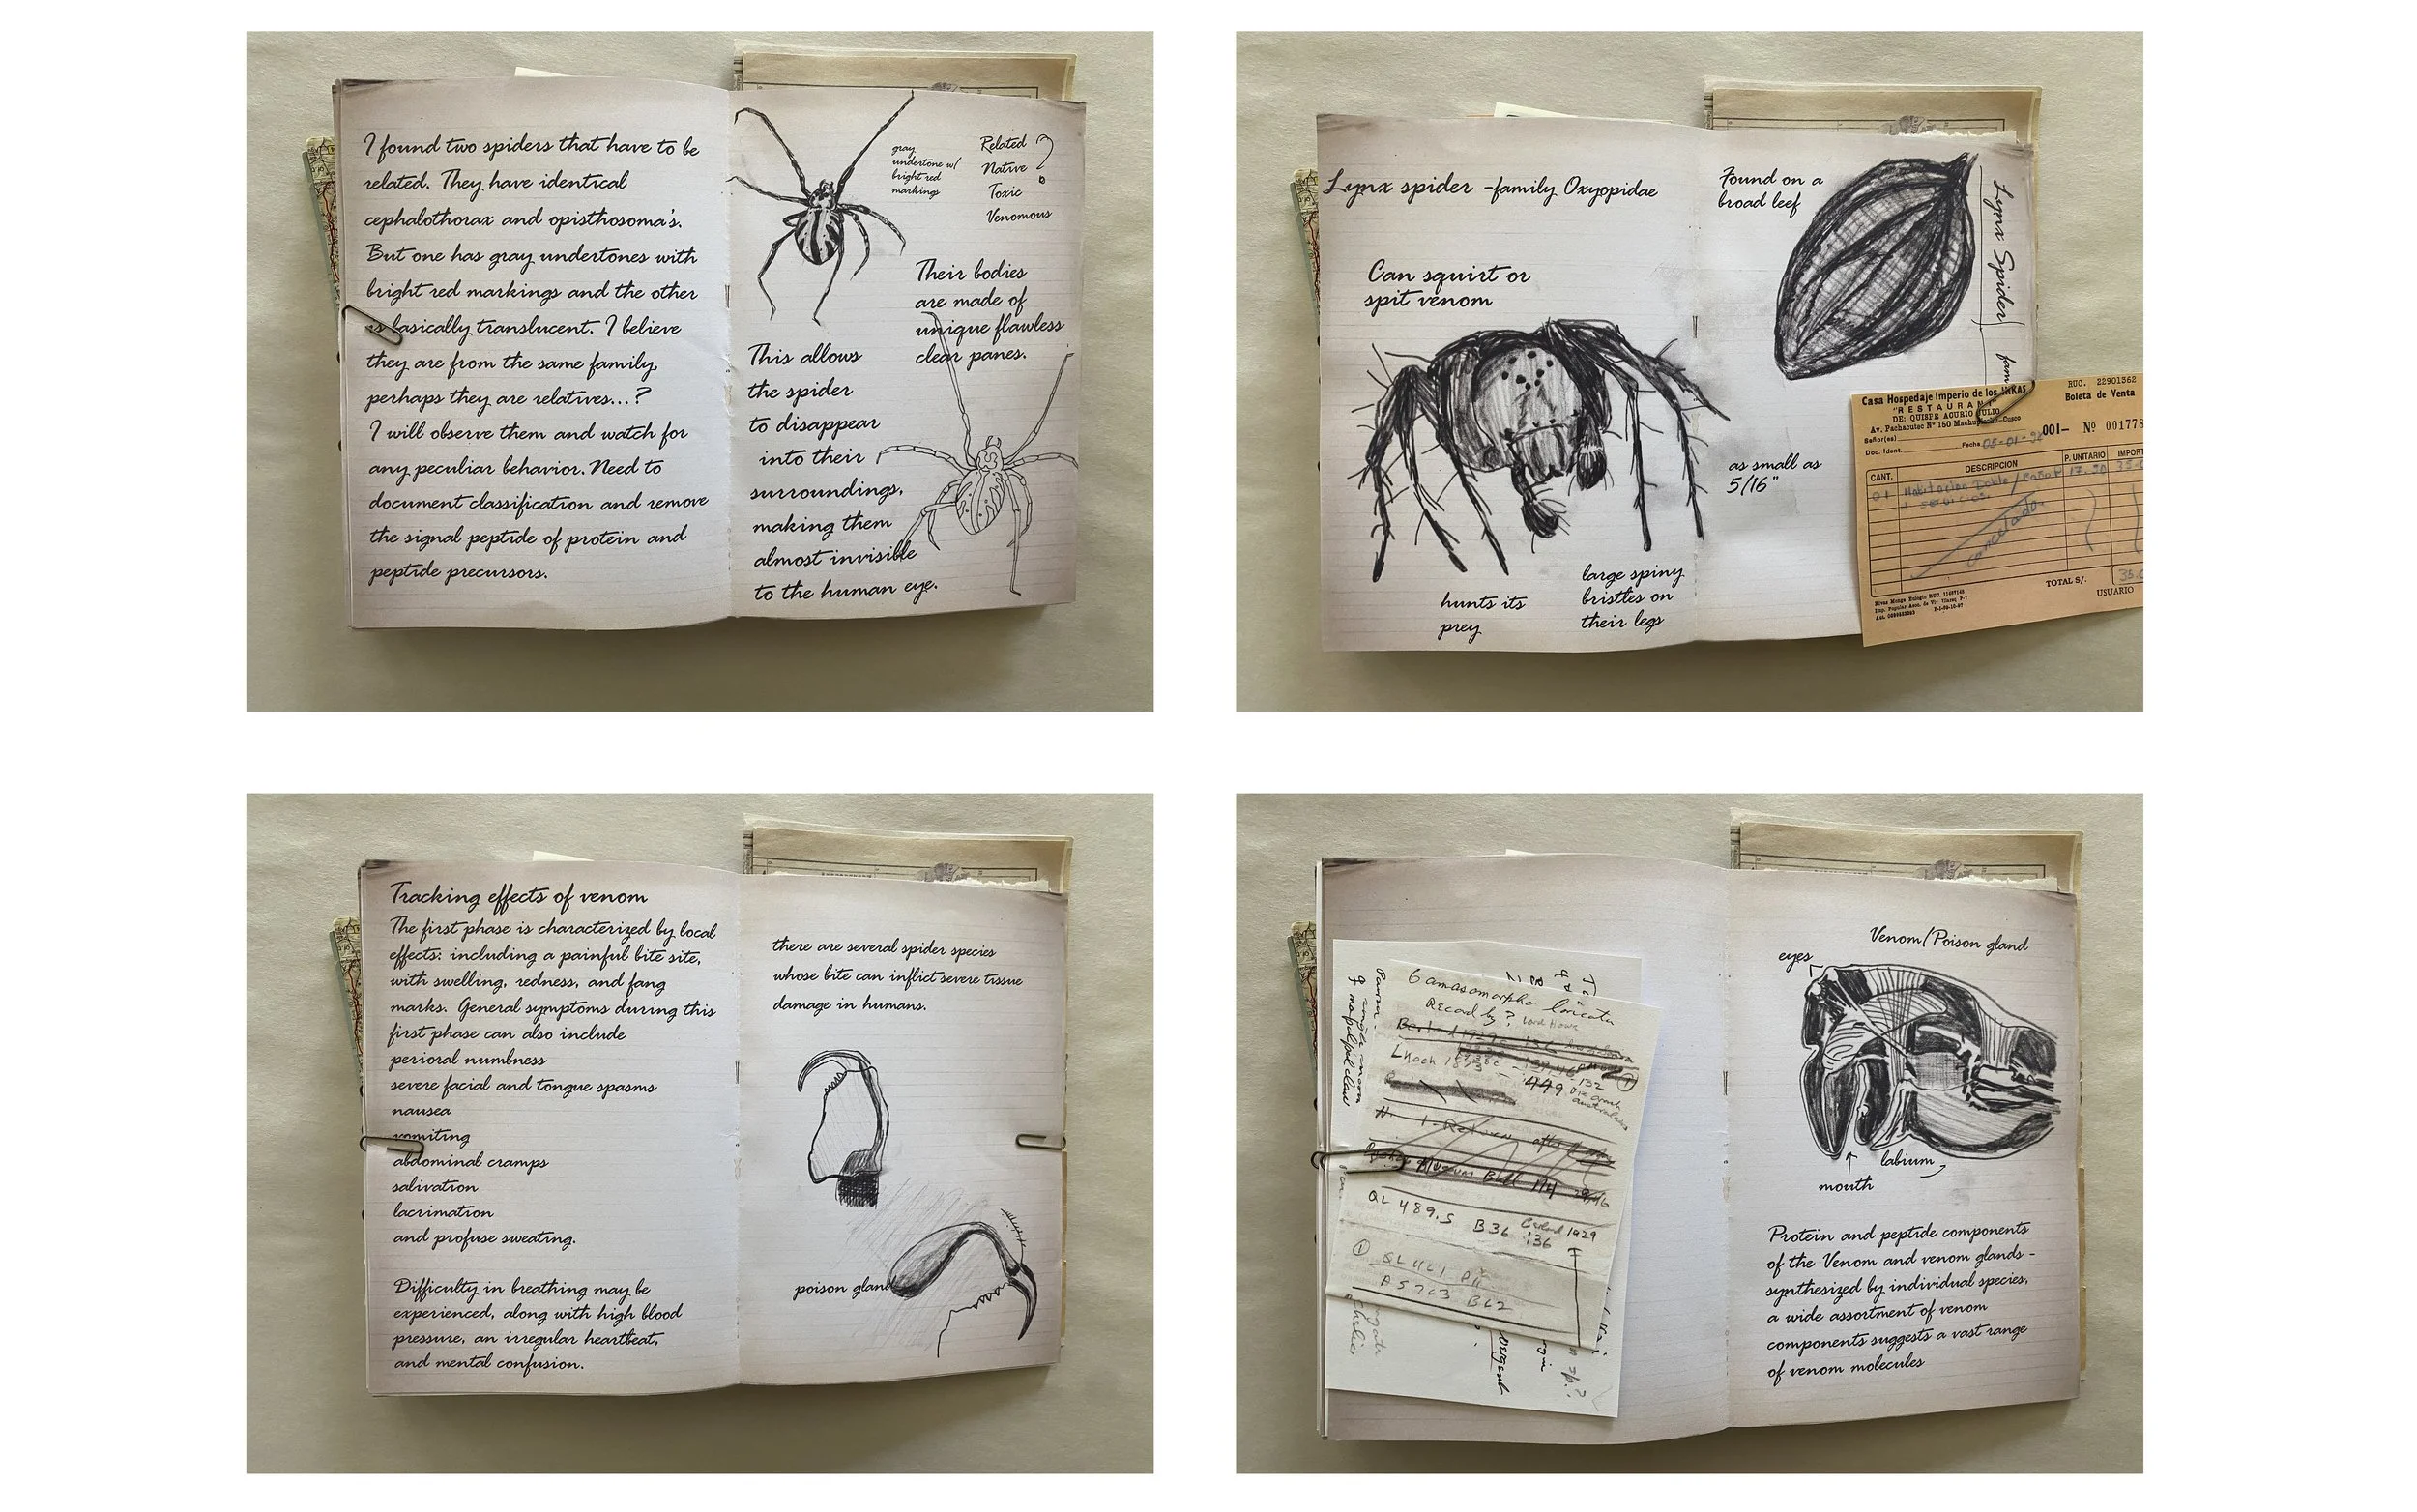 I found two spiders that have to be
related. They have identical
cephalothorax and opisthosoma's.
But one has gray undertones with
bright red markings and the other
is basically translucent. I believe
they are from the same family,
perhaps they are relatives...?
I will observe them and watch for
any peculiar behavior. Need to
document classification and remove
the signal peptide of protein and
peptide precursors.
gray
undertone w/
bright red
markings
Related
Native
Toxic
Venomous
?
Their bodies
are made of
unique flawless
clear panes.
This allows
the spider
to disappear
into their
surroundings,
making them
almost invisible
to the human eye.
Lynx spider -family Oxyopidae
Can squirt or
spit venom
hunts its
prey
large spiny
bristles on
their legs
Found on a
broad leef
as small as
5/16"
Lynx Spider fam
Casa Hospedaje Imperio de los INKAS
"RESTAURANT"
DE: QUISPE AGURIO JULIO
Av. Pachacutec Nº 150 Cusco
Señor(es)
Doc. Ident.
Fecha
RUC. 22901362
Boleta de Venta
001- Nº 001778
CANT. DESCRIPCION P. UNITARIO IMPORT
01
cancelado
TOTAL S/.
USUARIO
Tracking effects of venom
The first phase is characterized by local
effects: including a painful bite site,
with swelling, redness, and fang
marks. General symptoms during this
first phase can also include
perioral numbness
severe facial and tongue spasms
nausea
vomiting
abdominal cramps
salivation
lacrimation
and profuse sweating.
Difficulty in breathing may be
experienced, along with high blood
pressure, an irregular heartbeat,
and mental confusion.
there are several spider species
whose bite can inflict severe tissue
damage in humans.
poison gland
Gamasomorpha loricata
Record by? Lord Howe
L Koch 1873 - 449
QL 489.5 B36
Berland 1929
136
QL 421
B62
Venom/Poison gland
eyes
labium
mouth
Protein and peptide components
of the Venom and venom glands -
synthesized by individual species,
a wide assortment of venom
components suggests a vast range
of venom molecules